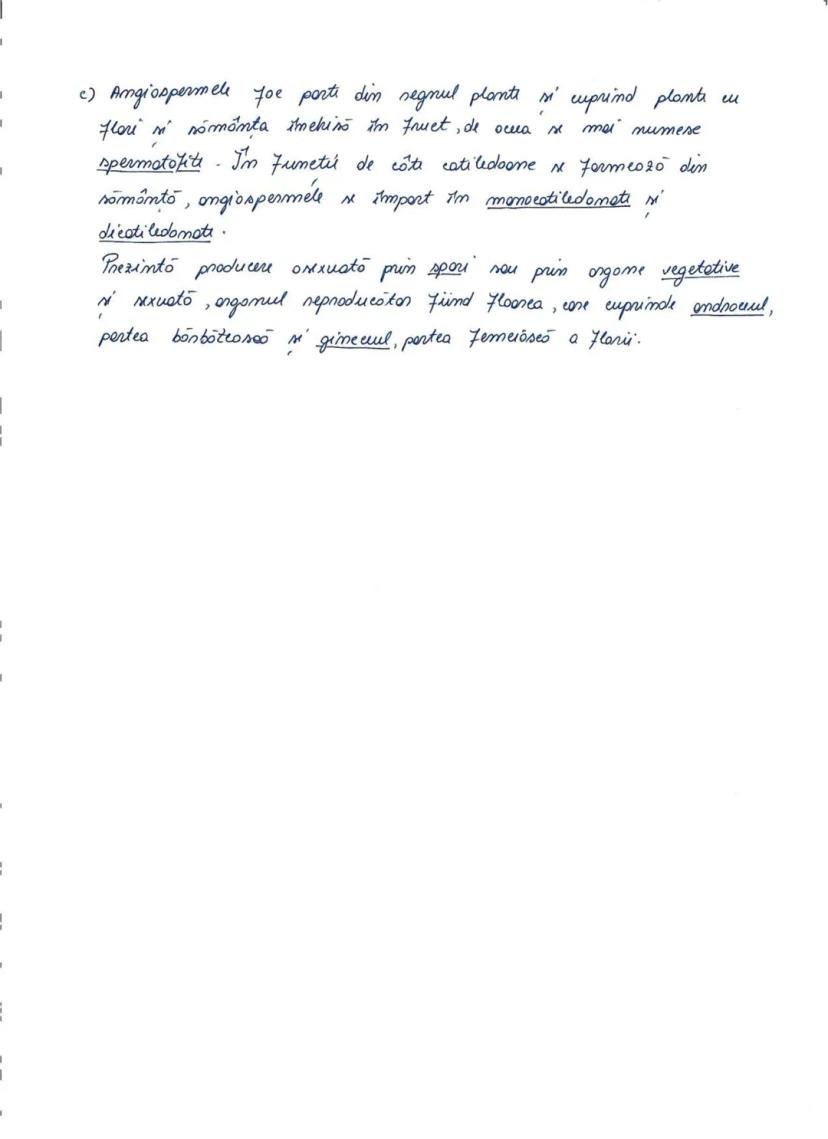 c) Angiospermele fac parte din regnul plante și cuprind plante cu
flori și sămânța închisă în fruct, de aceea se mai numesc
spermatofite. În funcție de câte cotiledoane se formează din
sămânță, angiospermele se împart în monocotiledonate și
dicotiledonate.
Prezintă producere asexuată prin spori sau prin organe vegetative
și sexuată, organul reproducător fiind floarea, care cuprinde androceul,
partea bărbătească și gineceul, partea femeiască a florii.